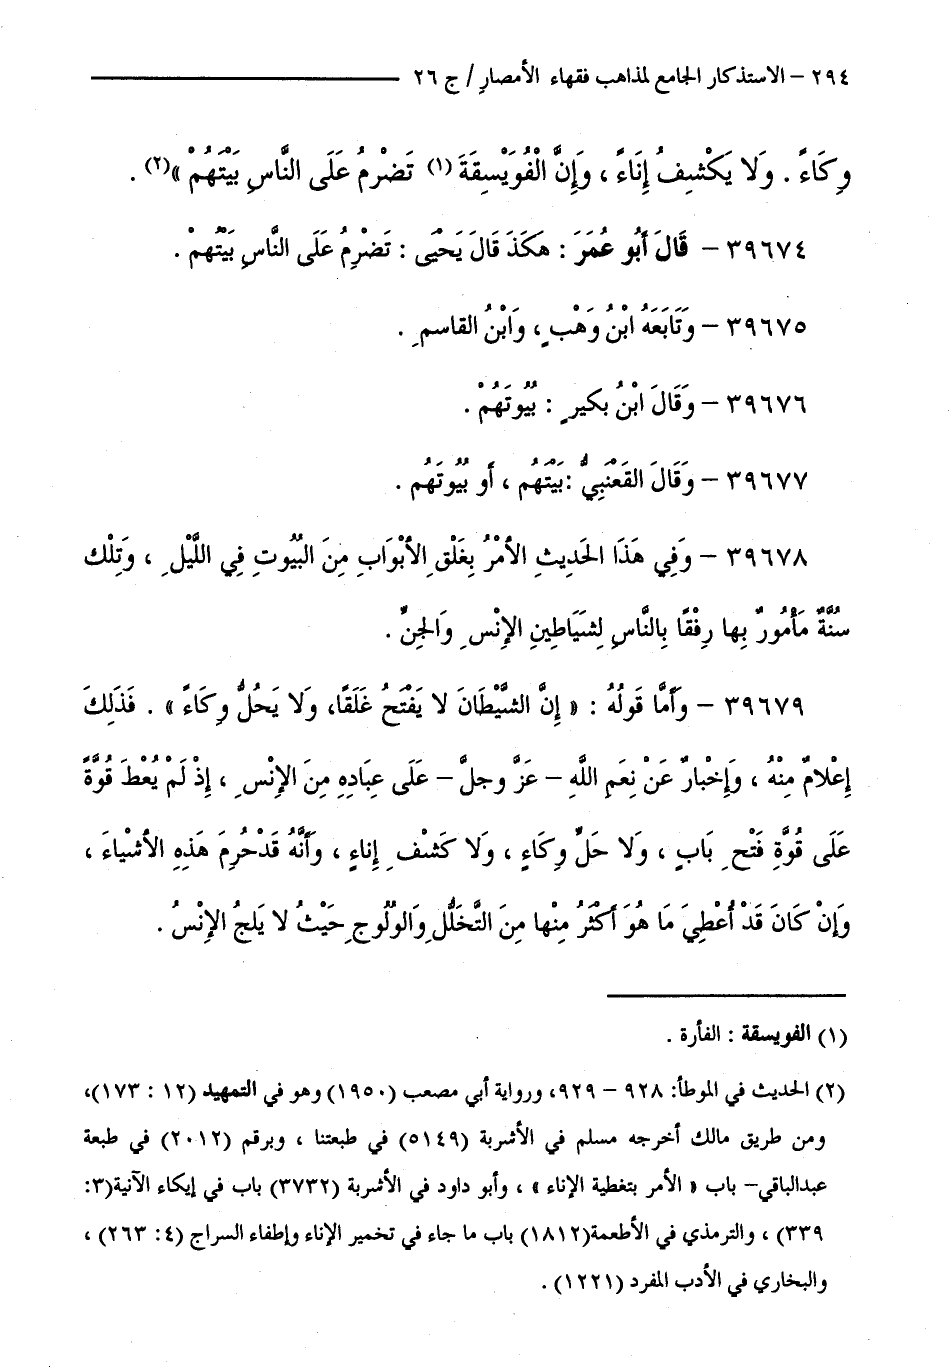 ٢٩٤ – الاستذكار الجامع لمذاهب فقهاء الأمصارِ / ج ٢٦
وِكَاءً . وَلا يَكْشِفُ إِنَاءً ، وَإِنَّ الْفُوَيْسِقَةَ (١) تَضْرِمُ عَلَى النَّاسِ بَيْتَهُمْ »(٢) .
٣٩٦٧٤ – قَالَ أَبُو عُمَرَ : هَكَذَ قَالَ يَحْيَى : تَضْرِمُ عَلَى النَّاسِ بَيْتُهمْ .
٣٩٦٧٥ – وَتَابَعَهُ ابْنُ وَهْبٍ ، وَابْنُ القاسمِ .
٣٩٦٧٦ – وَقَالَ ابْنُ بكيرٍ : بُيُوتَهُمْ .
٣٩٦٧٧ – وَقَالَ القَعْنَبِيُّ :بَيْتَهُم ، أَو بُيُوتَهُم .
٣٩٦٧٨ – وَفِي هَذَا الحَدِيثِ الأَمْرُ بِغَلْقِ الأَبْوَابِ مِنَ البُيُوتِ فِي اللَّيْلِ ، وَتِلْك
سُنَّةٌ مَأْمُورٌ بِها رِفْقًا بِالنَّاسِ لِشَيَاطِينِ الإِنْسِ وَالجِنِّ .
٣٩٦٧٩ – وَأَمَّا قَولُهُ : « إِنَّ الشَّيْطَانَ لا يَفْتَحُ غَلَقًا، وَلا يَحُلُّ وِكَاءً » . فَذَلِكَ
إِعْلامٌ مِنْهُ ، وَإِخْبارٌ عَنْ نِعَمِ اللَّهِ – عَزَّ وجلَّ – عَلَى عِبَادِهِ مِنَ الإِنْسِ ، إِذْ لَمْ يُعْطَ قُوَّةً
عَلَى قُوَّةِ فَتْحِ بَابٍ ، وَلا حَلِّ وِكَاءٍ ، وَلا كَشْفِ إِناءٍ ، وَأَنَّهُ قَدْحُرِمَ هَذِهِ الأَشْيَاءَ ،
وَإِنْ كَانَ قَدْ أُعْطِيَ مَا هُوَ أَكْثَرُ مِنْها مِنَ التَّخَلُّلِ وَالوُلُوجِ حَيْثُ لا يَلجُ الإِنْسُ .
(١) الفويسقة : الفأرة .
(٢) الحديث في الموطأ: ٩٢٨ – ٩٢٩، ورواية أبي مصعب (١٩٥٠) وهو في التمهيد (١٢ : ١٧٣)،
ومن طريق مالك أخرجه مسلم في الأشربة (٥١٤٩) في طبعتنا ، وبرقم (٢٠١٢) في طبعة
عبدالباقي– باب « الأمر بتغطية الإناء » ، وأبو داود في الأشربة (٣٧٣٢) باب في إيكاء الآنية(٣:
٣٣٩) ، والترمذي في الأطعمة(١٨١٢) باب ما جاء في تخمير الإناء وإطفاء السراج (٤: ٢٦٣) ،
والبخاري في الأدب المفرد (١٢٢١) .